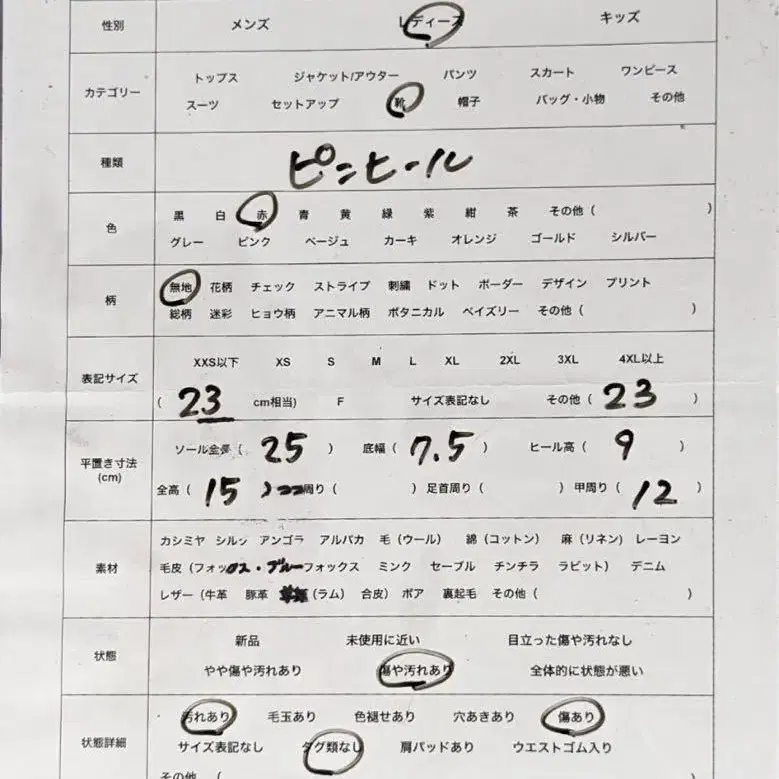 性別 メンズ レディース キッズ
カテゴリー
トップス ジャケット/アウター パンツ スカート ワンピース
スーツ セットアップ 靴 帽子 バッグ・小物 その他
種類 ピンヒール
色
黒 白 赤 青 黄 緑 紫 紺 茶 その他 ( )
グレー ピンク ベージュ カーキ オレンジ ゴールド シルバー
柄
無地 花柄 チェック ストライプ 刺繍 ドット ボーダー デザイン プリント
総柄 迷彩 ヒョウ柄 アニマル柄 ボタニカル ペイズリー その他 ( )
表記サイズ
XXS以下 XS S M L XL 2XL 3XL 4XL以上
( 23 cm相当) F サイズ表記なし その他 ( 23 )
平置き寸法
(cm)
ソール全長 ( 25 ) 底幅 ( 7.5 ) ヒール高 ( 9 )
全高 ( 15 ) 周り ( ) 足首周り ( ) 甲周り ( 12 )
素材
カシミヤ シルク アンゴラ アルパカ 毛 (ウール) 綿 (コットン) 麻 (リネン) レーヨン
毛皮 (フォックス・ブルーフォックス ミンク セーブル チンチラ ラビット) デニム
レザー (牛革 豚革 (ラム) 合皮) ボア 裏起毛 その他 ( )
状態
新品 未使用に近い 目立った傷や汚れなし
やや傷や汚れあり 傷や汚れあり 全体的に状態が悪い
状態詳細
汚れあり 毛玉あり 色褪せあり 穴あきあり 傷あり
サイズ表記なし タグ類なし 肩パッドあり ウエストゴム入り
その他 (